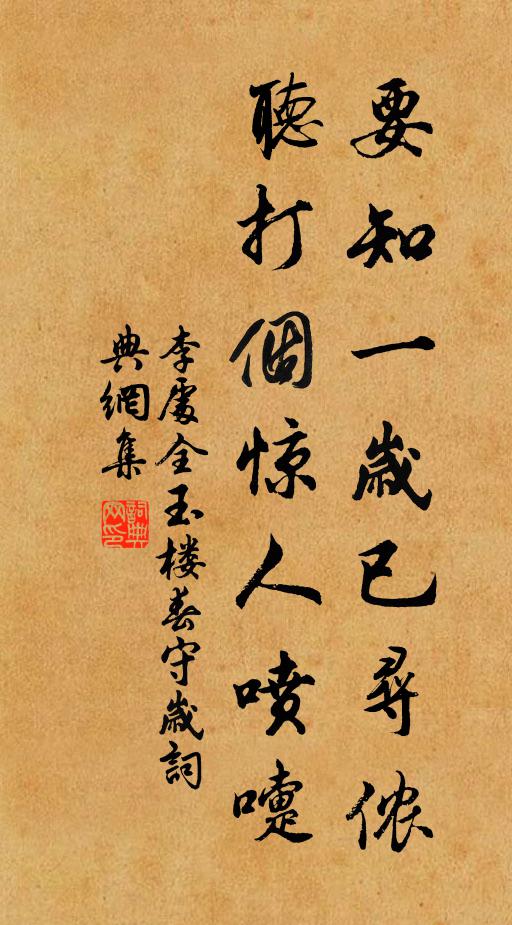 要知一歲已尋侬
聽打個惊人噴嚏
李處全玉楼春守歲詞
典網集
詞典網印